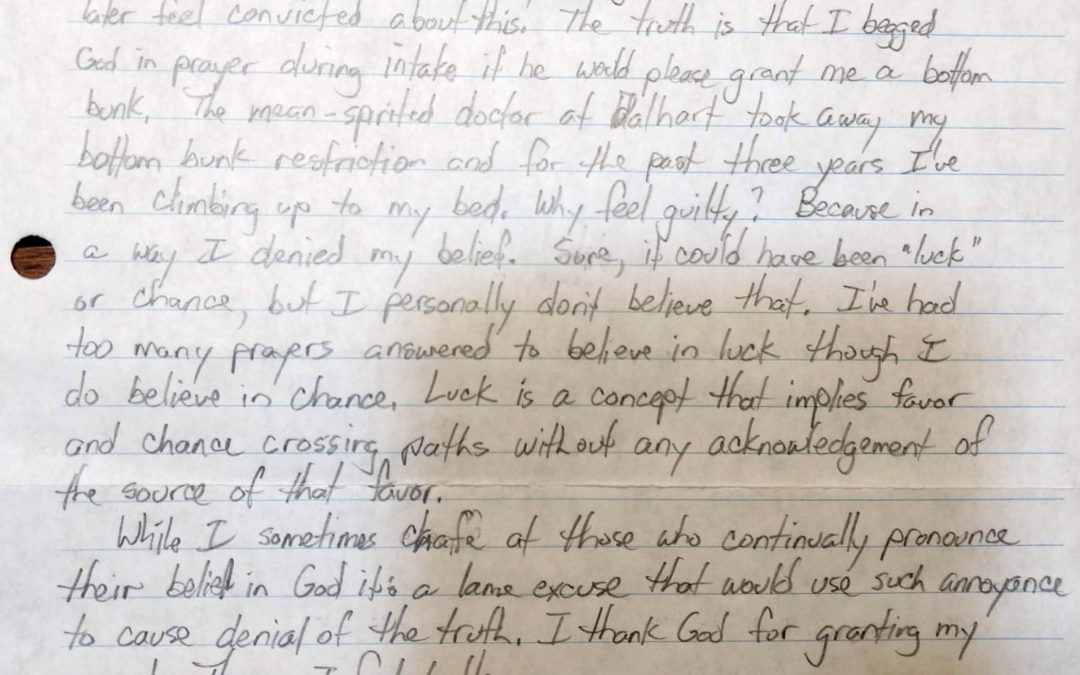 later feel convicted about this. The truth is that I begged
God in prayer during intake if he would please grant me a bottom
bunk. The mean-spirited doctor at Dalhart took away my
bottom bunk restriction and for the past three years I've
been climbing up to my bed. Why feel guilty? Because in
a way I denied my belief. Sure, it could have been "luck"
or chance, but I personally don't believe that. I've had
too many prayers answered to believe in luck though I
do believe in chance. Luck is a concept that implies favor
and chance crossing paths without any acknowledgement of
the source of that favor.
While I sometimes chafe at those who continually pronounce
their belief in God it's a lame excuse that would use such annoyance
to cause denial of the truth. I thank God for granting my